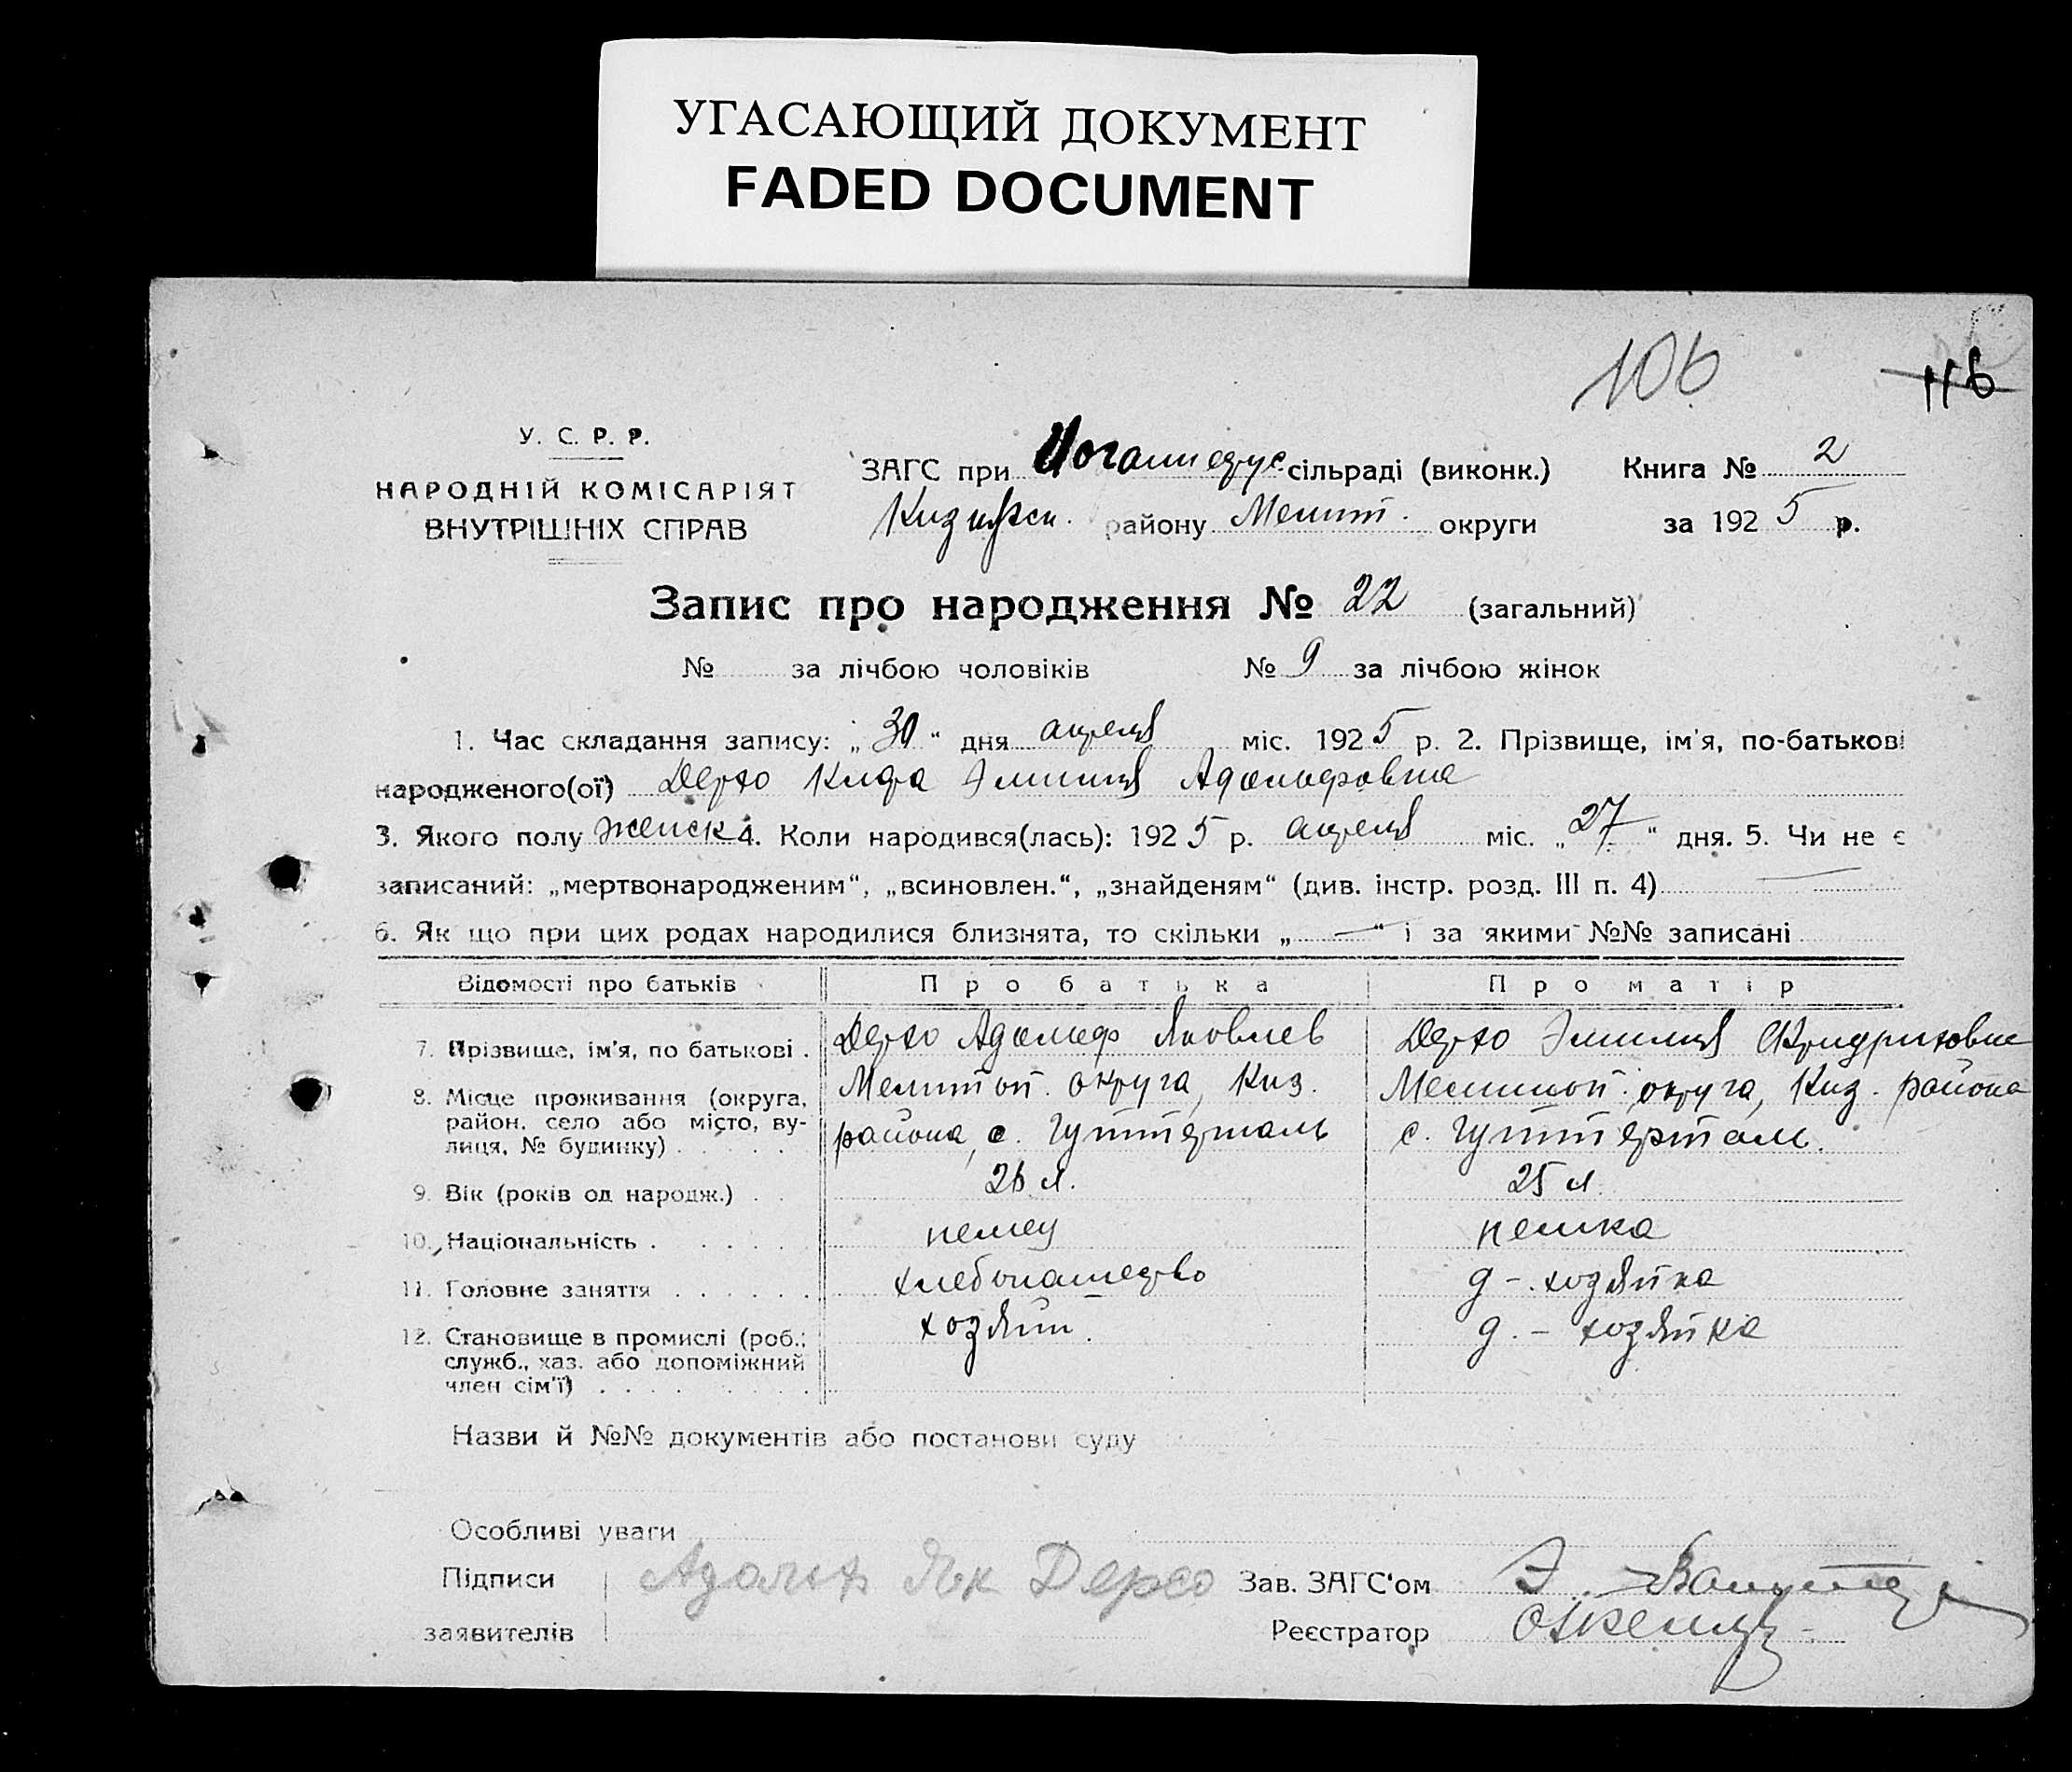 УГАСАЮЩИЙ ДОКУМЕНТ
FADED DOCUMENT
106
116
У. С. Р. Р.
НАРОДНІЙ КОМІСАРІЯТ
ВНУТРІШНІХ СПРАВ
ЗАГС при Иоганнедус. сільраді (виконк.) Книга № 2
району Мелит. округи за 1925 р.
Запис про народження № 22 (загальний)
№ за лічбою чоловіків № 9 за лічбою жінок
1. Час складання запису: „30“ дня апреля міс. 1925 р. 2. Прізвище, ім'я, по-батькові
народженого(ої) Дерхо Эмилия Адольфовна
3. Якого полу женск 4. Коли народився(лась): 1925 р. апреля міс. „27“ дня. 5. Чи не є
записаний: „мертвонародженим“, „всиновлен.“, „знайденям“ (див. інстр. розд. III п. 4) —
6. Як що при цих родах народилися близнята, то скільки „—“ і за якими №№ записані
Відомості про батьків Про батька Про матір
7. Прізвище, ім'я, по батькові . Дерхо Адольф Яковлев Дерхо Эмилия Фридриховна
8. Місце проживання (округа, район, село або місто, вулиця, № будинку) . . . . . Мелитоп. округа, Киз. района, с. Гуттерталь Мелитоп. округа, Киз. района с. Гуттерталь.
9. Вік (років од народж.) . . 26 л. 25 л.
10. Національність . . . . . немец немка
11. Головне заняття . . . . . . хлебопашество д-хозяйка
12. Становище в промислі (роб., служб., хаз. або допоміжний член сім'ї) . . . . . . . . хозяин. д.-хозяйка
Назви й №№ документів або постанови суду
Особливі уваги
Підписи Адольф Як Дерхо Зав. ЗАГС'ом
заявителів Реєстратор